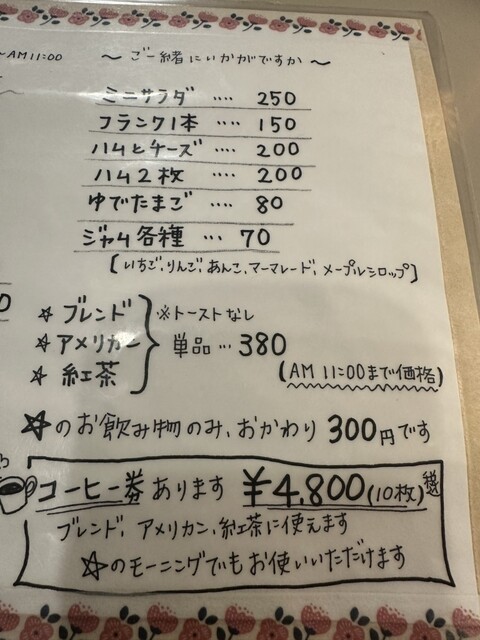 ~AM11:00
～ご一緒にいかがですか～
ミニサラダ ‥‥ 250
フランク1本 ‥‥ 150
ハムとチーズ ‥‥ 200
ハム2枚 ‥‥ 200
ゆでたまご ‥‥ 80
ジャム各種 … 70
[いちご、りんご、あんこ、マーマレード、メープルシロップ]
☆ ブレンド
☆ アメリカン
☆ 紅茶
※トーストなし
単品 … 380
(AM 11:00まで価格)
☆のお飲み物のみ、おかわり 300円です
コーヒー券 あります ¥4,800(10枚)税込
ブレンド、アメリカン、紅茶に使えます
☆のモーニングでもお使いいただけます